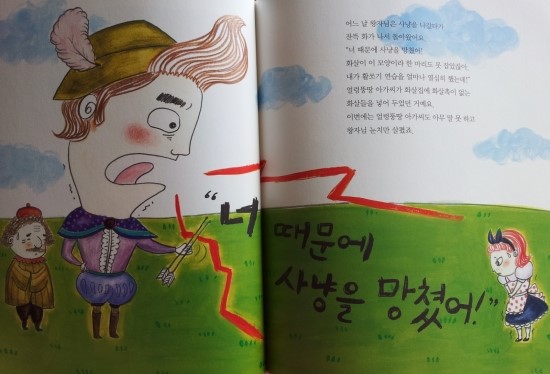 어느 날 왕자님은 사냥을 나갔다가
잔뜩 화가 나서 돌아왔어요.
"너 때문에 사냥을 망쳤어!
화살이 이 모양이라 한 마리도 못 잡았잖아.
내가 활쏘기 연습을 얼마나 열심히 했는데!"
엄벙뚱땅 아가씨가 화살집에 화살촉이 없는
화살들을 넣어 두었던 거예요.
이번에는 엄벙뚱땅 아가씨도 아무 말 못 하고
왕자님 눈치만 살폈죠.
"너
때문에
사냥을 망쳤어!"